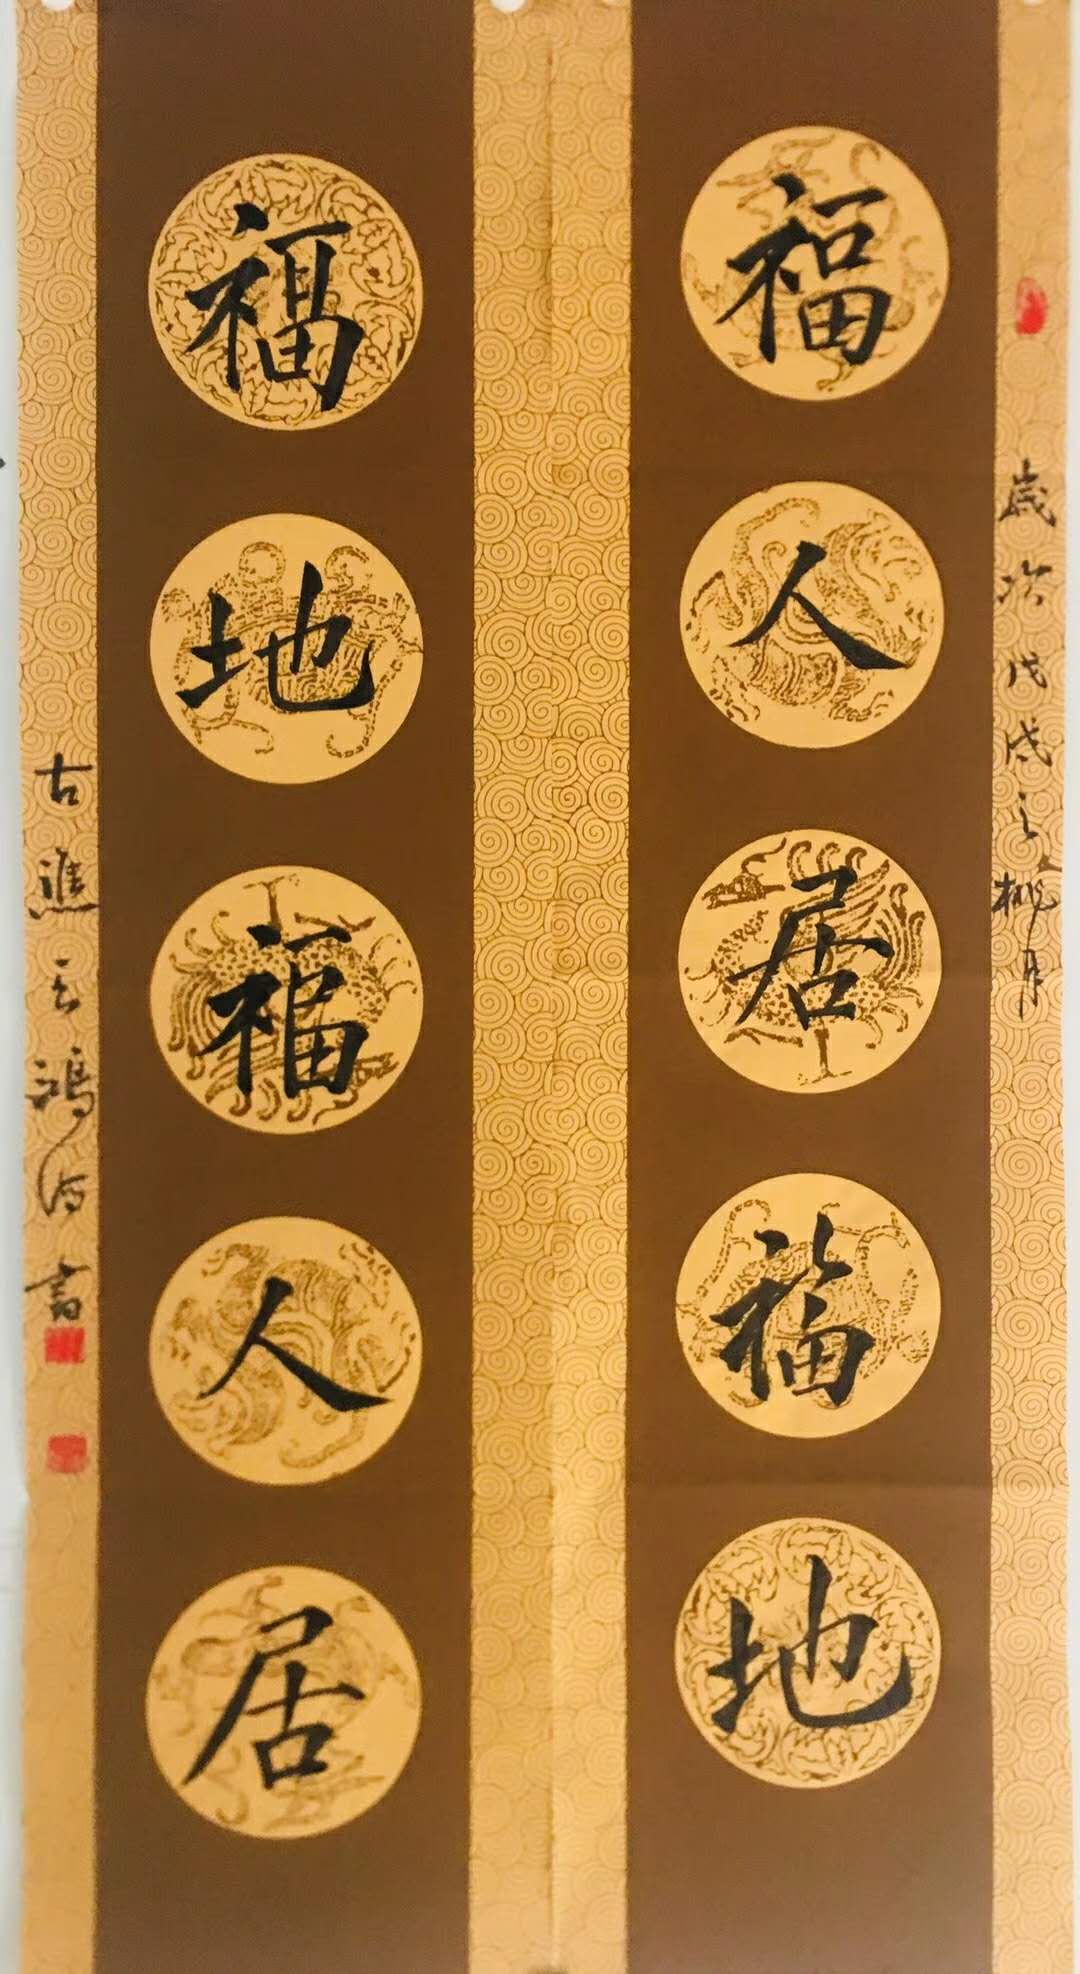 歲次戊戌之桃月
福人居福地
福地福人居
古譙 書